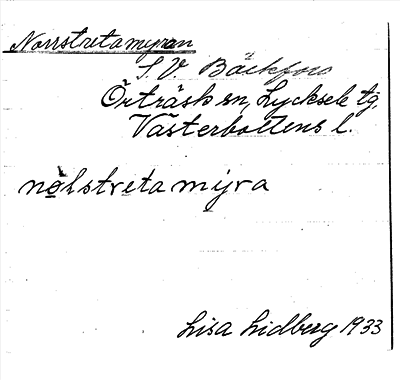 Norrstretamyran
S. V. Bäckfors
Örträsk sn, Lycksele tg.
Västerbottens l.
nòlstreta mýra
Lisa Lidberg 1933